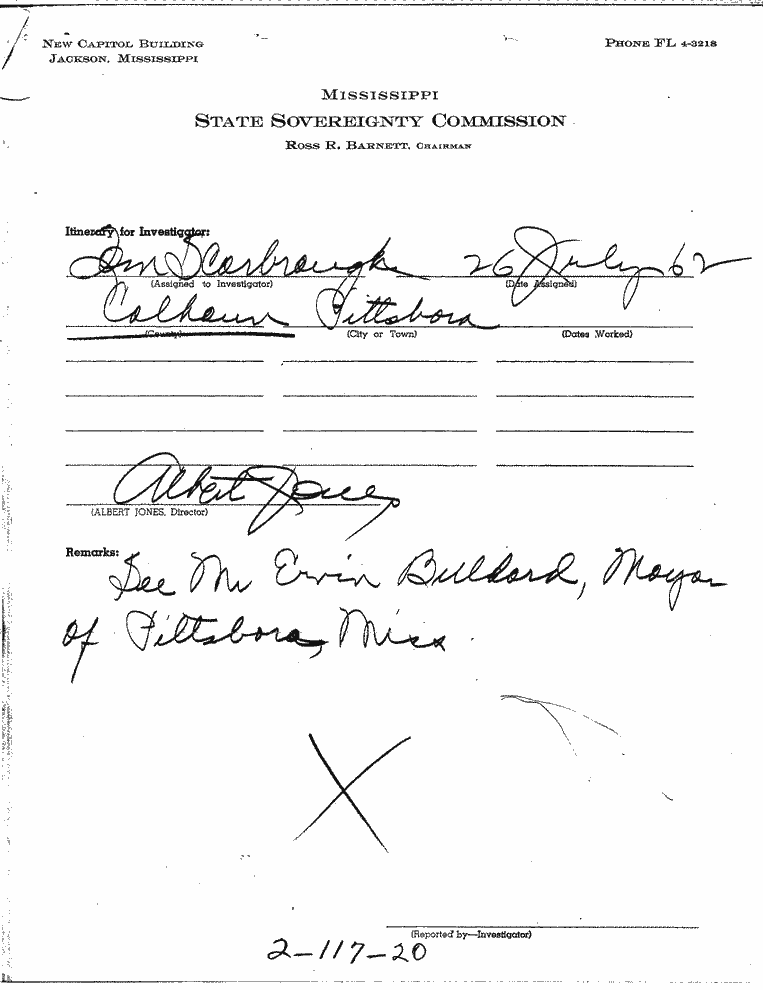 NEW CAPITOL BUILDING
JACKSON, MISSISSIPPI
PHONE FL 4-3218
MISSISSIPPI
STATE SOVEREIGNTY COMMISSION
ROSS R. BARNETT, CHAIRMAN
Itinerary for Investigator:
Tom Scarbrough 26 July 62
(Assigned to Investigator) (Date Assigned)
Calhoun Pittsboro
(County) (City or Town) (Dates Worked)
Albert Jones
(ALBERT JONES, Director)
Remarks:
See Mr Ervin Bullard, Mayor
of Pittsboro, Miss
(Reported by—Investigator)
2-117-20